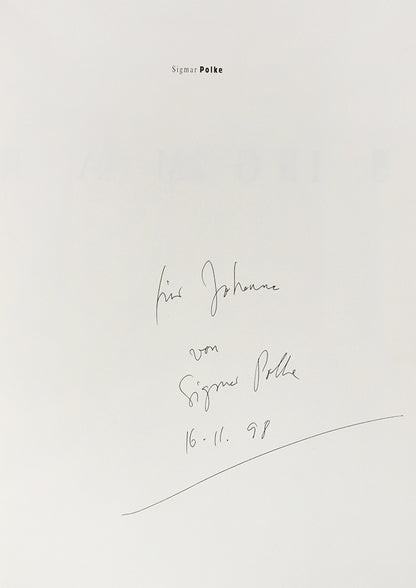 Sigmar Polke
für Johanna
von
Sigmar Polke
16.11.98